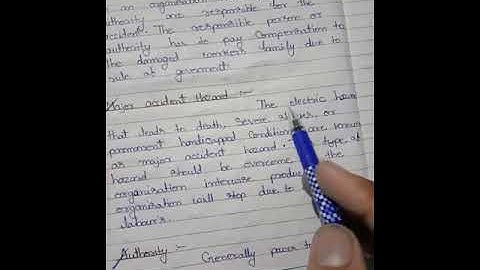 an organisation
authority are responsible for the
accident. The responsible person or
authority has to pay Compensation to
the damaged workers family due to
rule at goverment.
Major accident Hazard :-
The electric hazard
that leads to death, severe or
permanent handicapped Conditions are known
as major accident hazard. type at
hazard should be overcome the
organisation interwise production
organisation will stop due to
labour's.
Authority :- Generally power